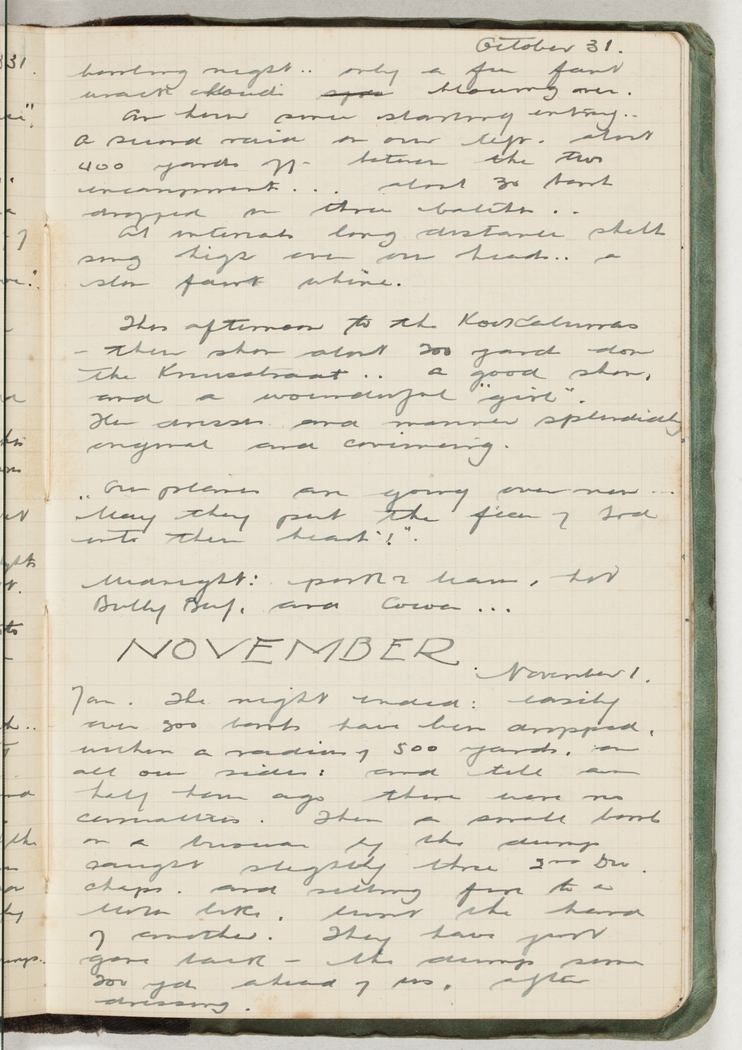 331.
October 31.
bombing night.. only a few faint
wrack clouds blowing over.
An hour since starting entry..
a second raid on our left. about
400 yards off - between the two
encampments... about 30 bombs
dropped in three batches..
At intervals long distance shells
sang high over our heads.. a
slow faint whine.
This afternoon to the Kookaburras
- their show about 200 yards down
the Kruisstraat.. a good show,
and a wounderful "girl".
Her dresses and manner splendidly
original and convincing.
"Our planes are going over now...
May they put the fear of God
into their hearts!".
Midnight: pork & beans, hot
Bully Beef, and Cocoa...
NOVEMBER
November 1.
7am. The night ended: easily
over 200 bombs have been dropped,
within a radius of 500 yards, on
all our sides: and till an
half hour ago there were no
casualties. Then a small bomb
on a bivouac by the dump
caught slightly three 2nd Div.
chaps. and setting fire to a
motor bike, burnt the hand
of another. They have just
gone back - the dump some
200 yds ahead of us, after
dressing.